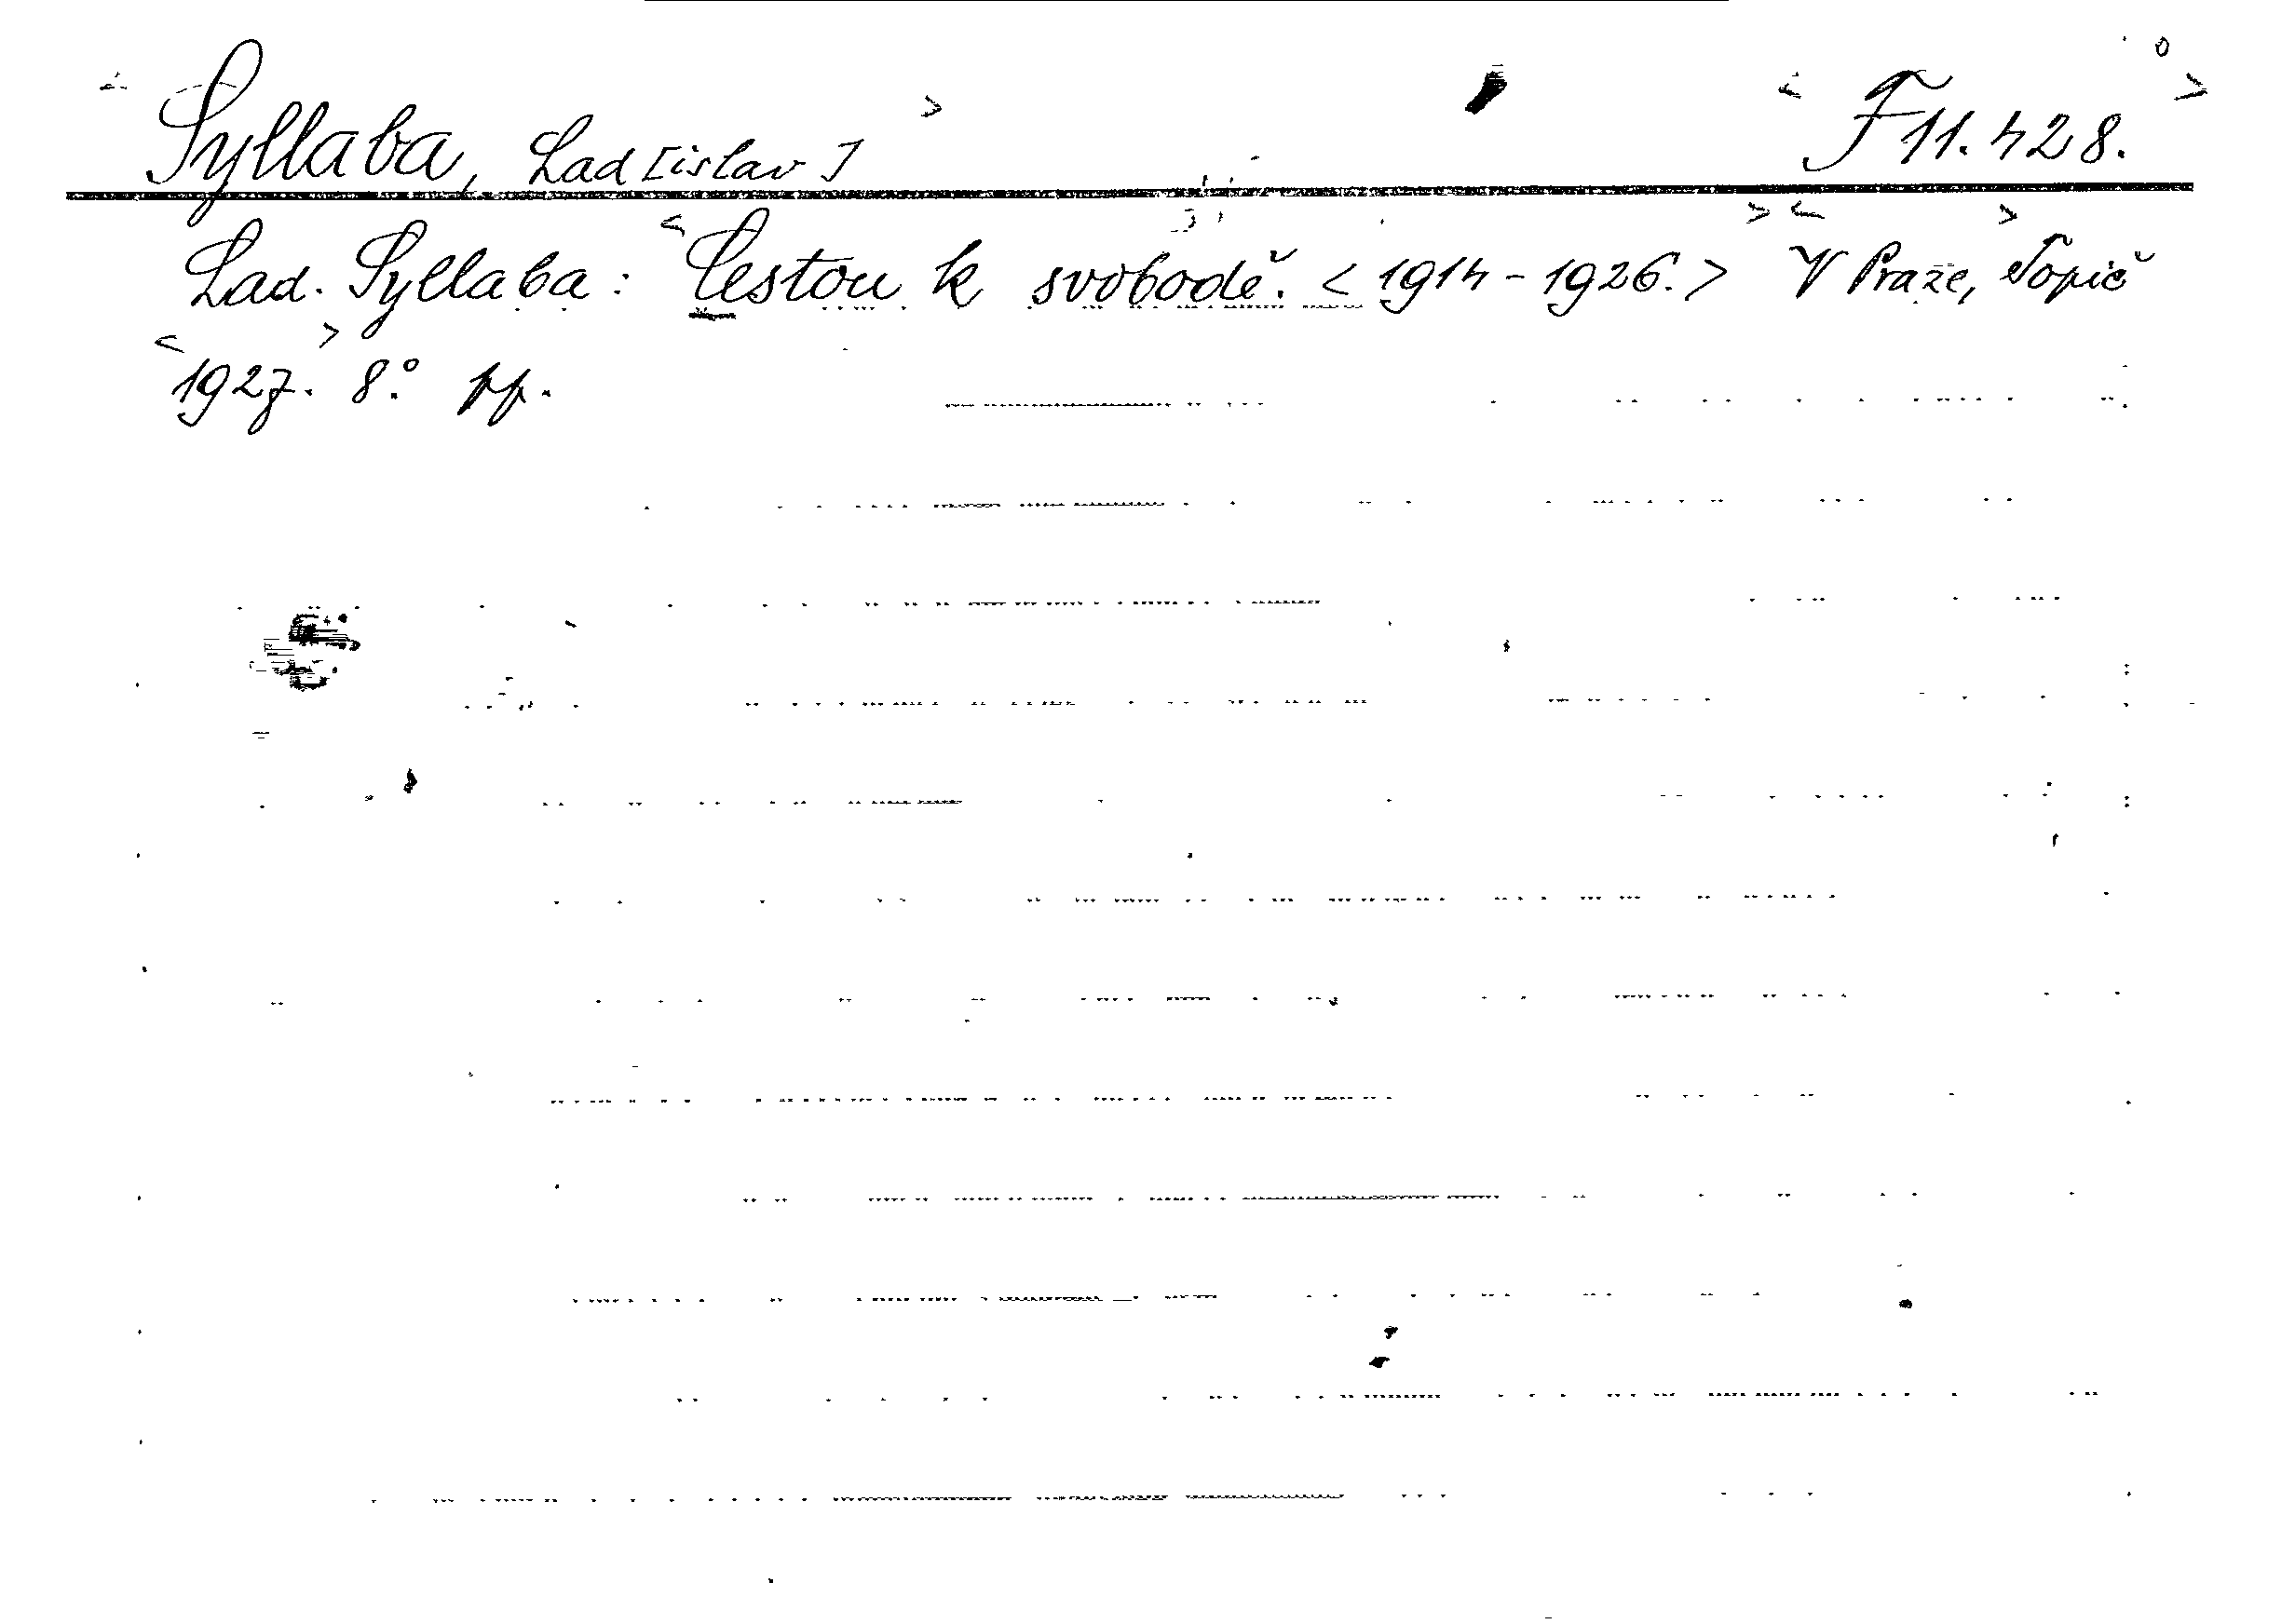 Syllaba, Lad[islav] F 11.428.
Lad. Syllaba: Cestou k svobodě. <1914-1926.> V Praze, Topič
1927. 8°. pp.